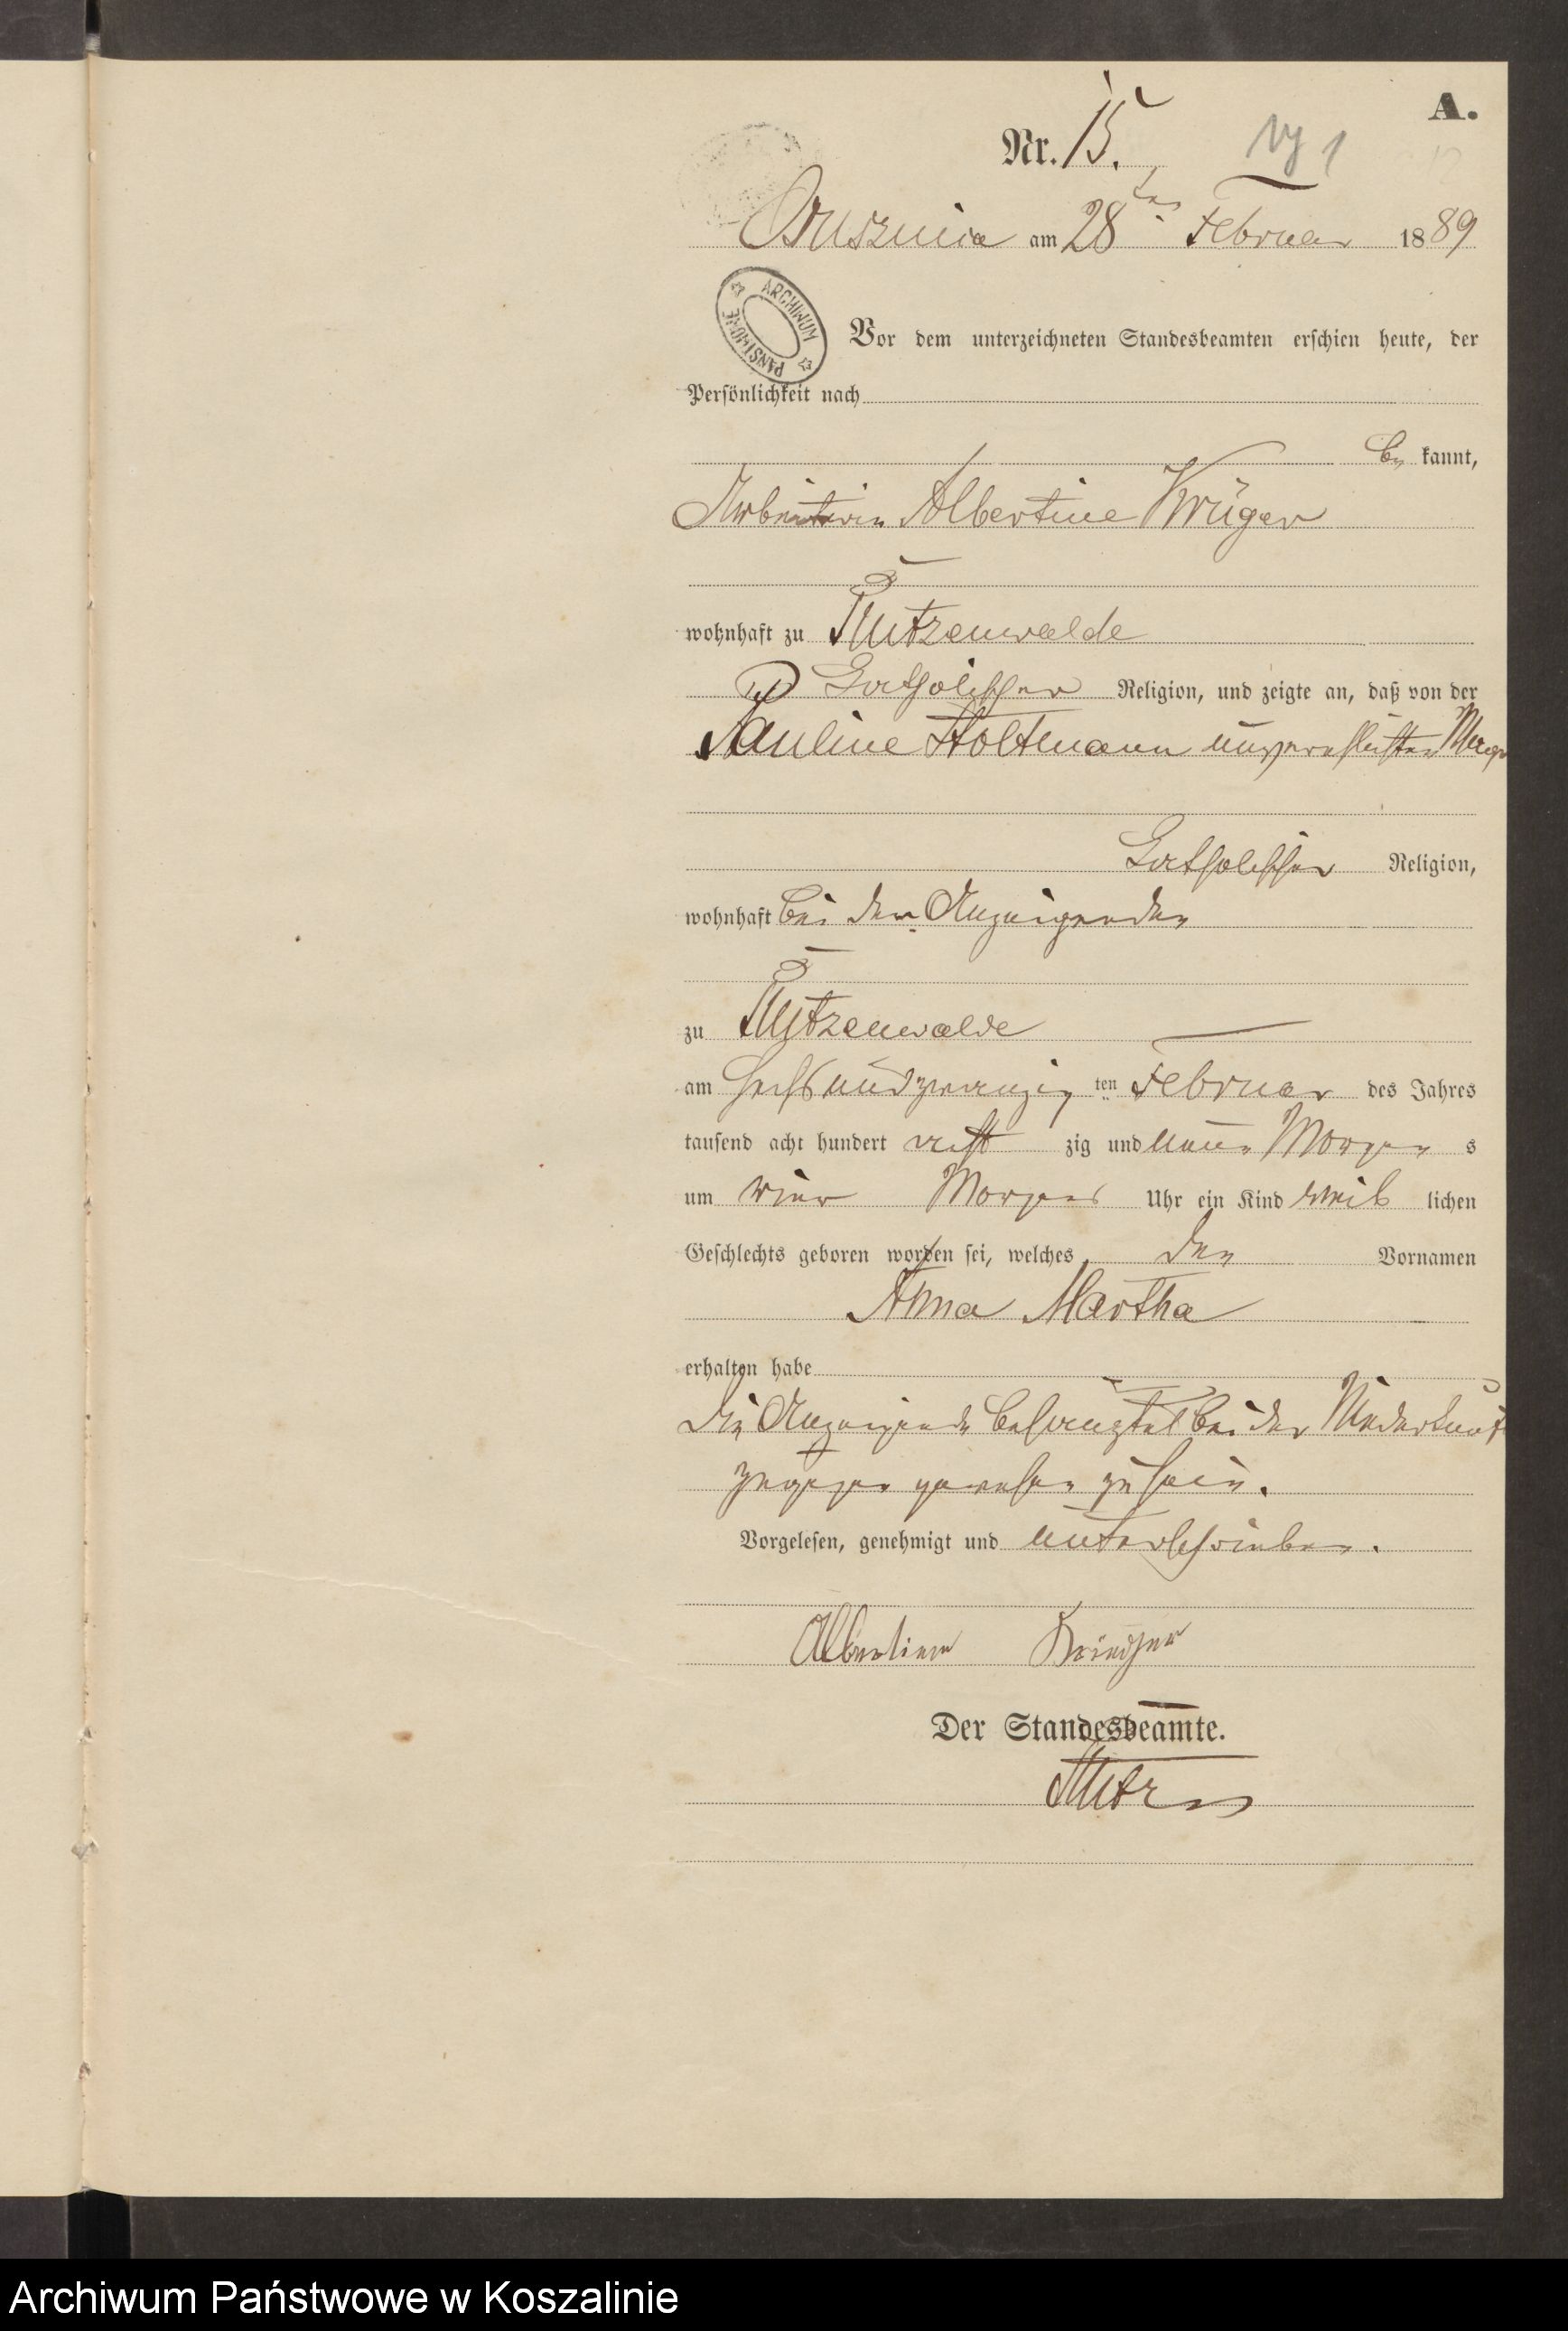 A.
Nr. 15.
am 28ten Februar 1889
ARCHIWUM PAŃSTWOWE
Vor dem unterzeichneten Standesbeamten erschien heute, der
Persönlichkeit nach
be kannt,
Arbeiterin Albertine Krüger
wohnhaft zu Stutzenwalde
catholischer Religion, und zeigte an, daß von der
Pauline Stoltmann unverehlichten
catholischer Religion,
wohnhaft bei der Anzeigenden
zu Stutzenwalde
am sechsundzwanzig ten Februar des Jahres
tausend acht hundert acht zig und neun Morgen s
um vier Morgens Uhr ein Kind weib lichen
Geschlechts geboren worden sei, welches den Vornamen
Anna Martha
erhalten habe
Die Anzeigende behauptet bei der Niederkunft
zugegen gewesen zu sein.
Vorgelesen, genehmigt und unterschrieben.
Der Standesbeamte.
Archiwum Państwowe w Koszalinie